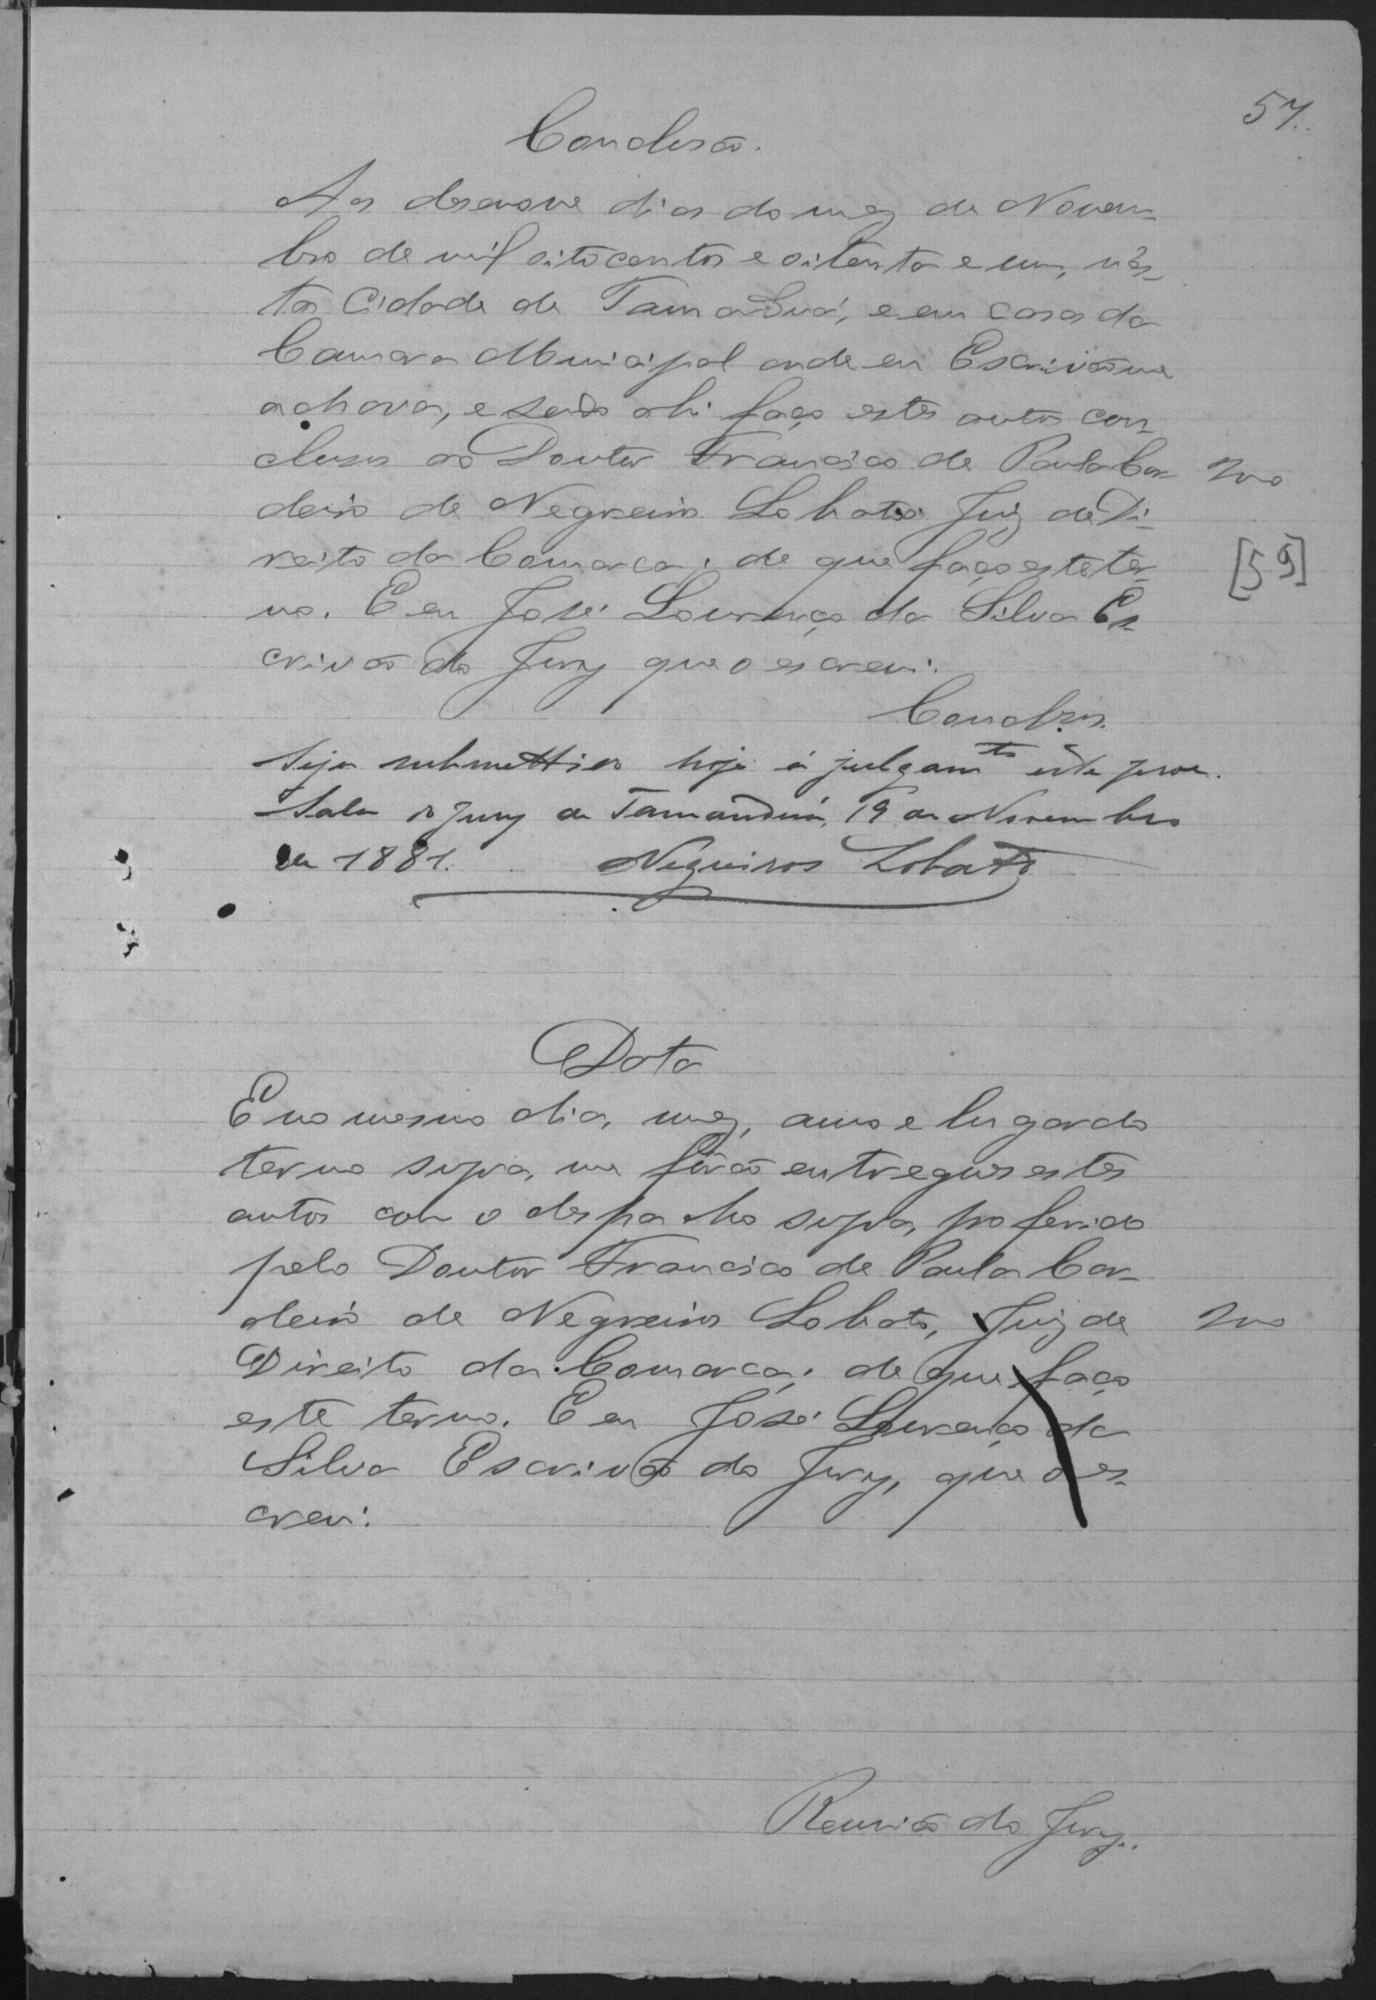 57.
Conclusão.
Aos desenove dias do mez de Novem-
bro de mil oitocentos e oitenta e um, nes-
ta Cidade de Tamanduá, e em casa da
Camara Municipal onde eu Escrivão me
achava, e sendo ahi faço estes autos con-
clusos ao Doutor Francisco de Paula Cor-
deiro de Negreiros Lobato Juiz de Di-
[59]
reito da Comarca; de que faço este ter-
mo. E eu José Lourenço da Silva Es-
crivão do Jury que o escrevi.
Conclusos.
Seja submettido hoje á julgamto este proc.
Sala do Jury de Tamanduá, 19 de Novembro
de 1881. Negreiros Lobato
Data
E no mesmo dia, mez, anno e lugar do
termo supra, me forão entregues estes
autos com o despacho supra, proferido
pelo Doutor Francisco de Paula Cor-
deiro de Negreiros Lobato, Juiz de
Direito da Comarca; de que faço
este termo. E eu José Lourenço da
Silva Escrivão do Jury, que o es-
crevi.
Reunião do Jury.